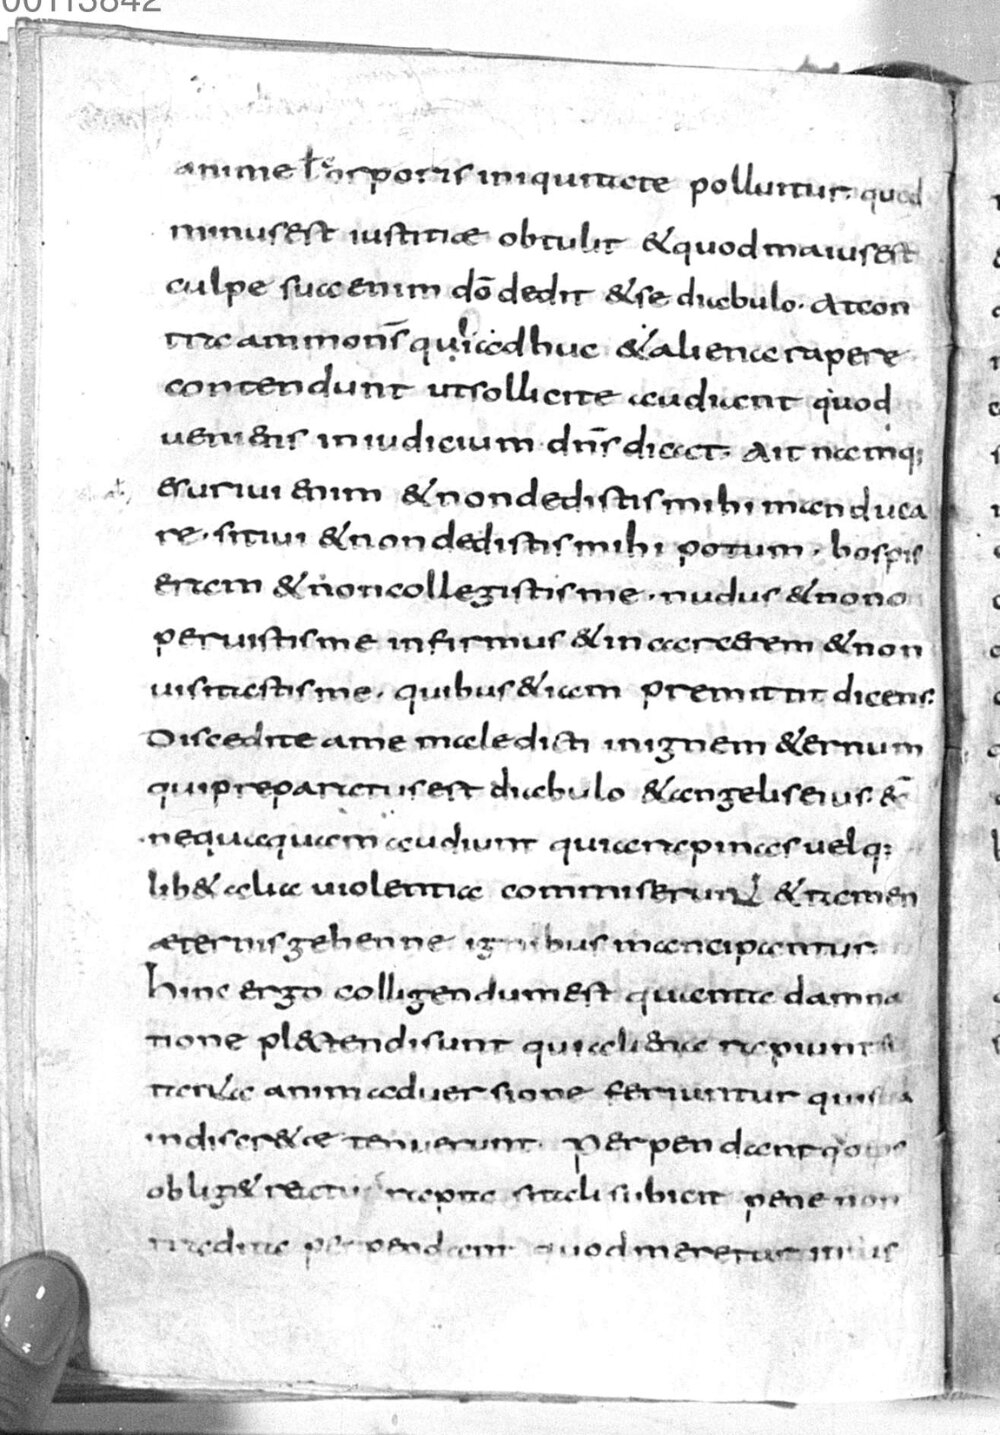 00113842
anime ł corporis iniquitate polluitur. quod
minus est iustitiae obtulit &quod maius est
culpe sua enim dō dedit &se diabulo. At con
tra ammonēs qui adhuc &aliena rapere
contendunt ut sollicite audiant quod
ueniens in iudicium dn̄s dicat. Ait namq;
esuriui enim &non dedistis mihi manduca
re. sitiui &non dedistis mihi potum. hospis
eram &non collegistis me. nudus &non o
peruistis me infirmus &in carcerem &non
uisitastis me. quibus &iam premittit dicens.
Discedite ame maledicti in ignem &ernum
qui preparatus est diabulo &angelis eius. &
nequaquam audiunt quia rapinas uel q;
lib& alia uiolentia commiserunt &tamen
aeternis gehenne ignibus mancipantur.
hinc ergo colligendum est quanta damna
tione plectendi sunt qui aliena rapiunt si
tanta animaduersione feriuntur qui sua
indiscr&ae tenuerunt. Perpendant quo
oblig& reatu rapta si tali subicit pene non
tradita perpendant quod meretur